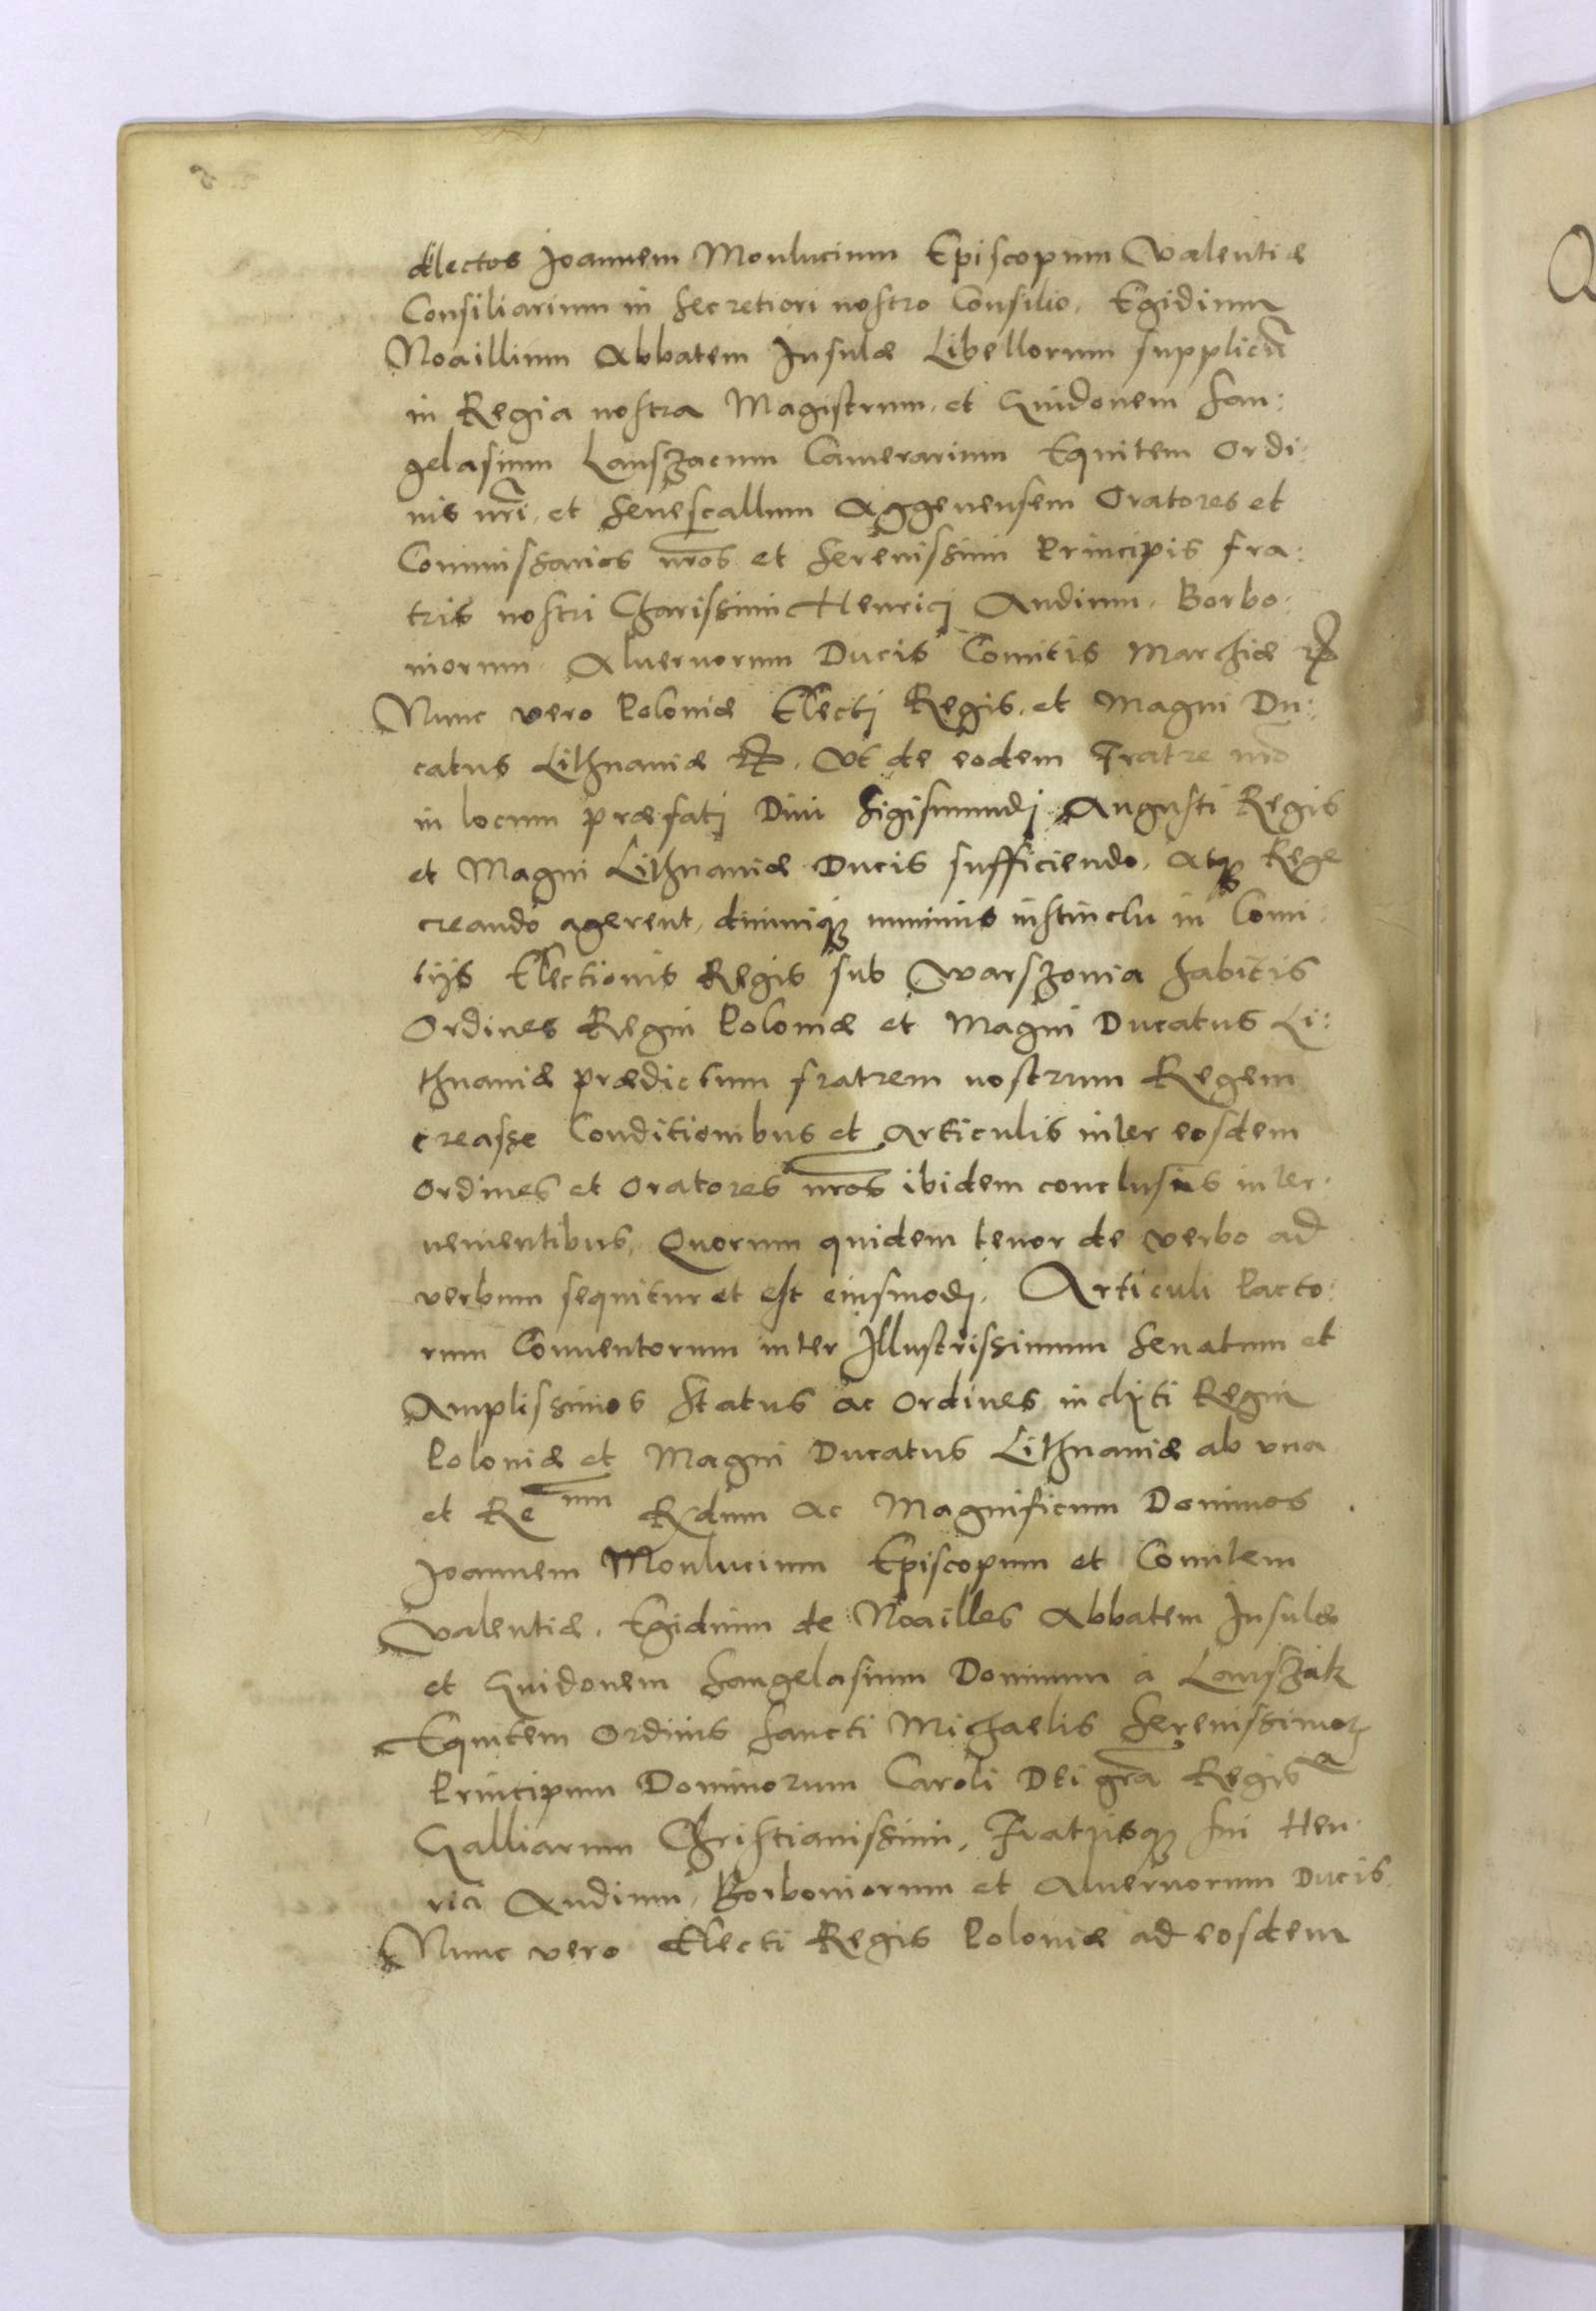 dilectos Joannem Monlucium Episcopum Valentiæ
Consiliarium in Secretiori nostro Consilio, Egidium
Noaillium Abbatem Insulæ Libellorum supplicū
in Regia nostra Magistrum, et Guidonem San:
gelasium Lanszacum Camerarium Equitem Ordi:
nis nr̃i, et Senescallum Aggenensem Oratores et
Commissarios nr̃os et Serenissimi Principis fra:
tris nostri Charissimi Henricj Andium, Borbo:
niorum, Aluernorum Ducis Comitis Marchiæ etc
Nunc vero Poloniæ Electj Regis, et Magni Du:
catus Lithuaniæ etc. Vt de eodem Fratre nr̃o
in locum præfatj Diui Sigismundj Augusti Regis
et Magni Lithuaniæ Ducis sufficiendo, atq; Rege
creando agerent, diuiniq; numinis instinctu in Comi:
tijs Electionis Regis sub Warszouia habitis
Ordines Regni Poloniæ et Magni Ducatus Li:
thuaniæ prædictum fratrem nostrum Regem
creasse Conditionibus et Articulis inter eosdem
Ordines et Oratores nr̃os ibidem conclusis inter:
uenientibus, Quorum quidem tenor de verbo ad
verbum sequitur et est eiusmodj. Articuli Pacto:
rum Conuentorum inter Illustrissimum Senatum et
Amplissimos Status ac Ordines inclyti Regni
Poloniæ et Magni Ducatus Lithuaniæ ab vna
et Re<sup>um</sup> Rdum ac Magnificum Dominos
Joannem Monlucium Episcopum et Comitem
Valentiæ, Egidium de Noailles Abbatem Insulæ
et Guidonem Sangelasium Dominum à Lanszak
Equitem Ordinis Sancti Michaelis Serenissimor̃
Principum Dominorum Caroli Dei gr̃a Regis
Galliarum Christianissimi, Fratrisq; sui Hen:
rici Andium, Borboniorum et Aluernorum Ducis
Nunc vero Electi Regis Poloniæ ad eosdem